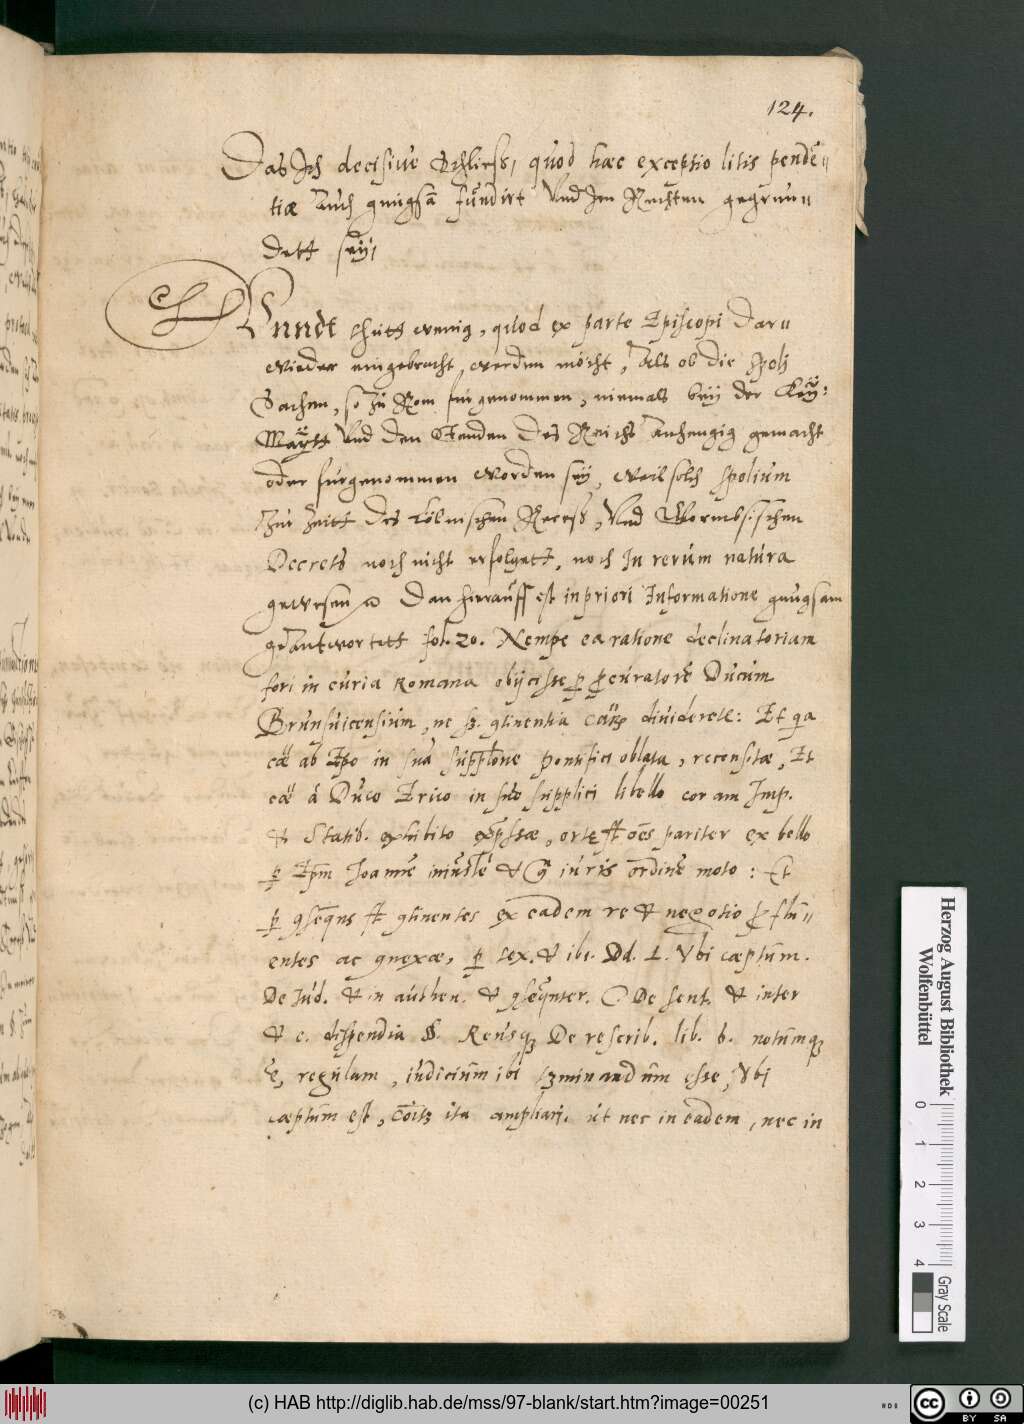 124.
Das Ich decisive Schliess, quod haec exceptio litis pendē=
tiæ Auch gnugsā fundirt Und Im Rechten gegrun=
dett sey,
Unndt thutt wenig, quod ex parte Episcopi Dar=
wieder eingebracht werden möcht, Als ob die Spolj
Sachen, so zu Rom furgenommen, niemals bey der Kay:
Maytt Und den Stenden des Reichs Anhengig gemacht
oder furgenommen worden sey, weil solch spolium
Zur Zeitt des Cölnischen Recess, Und Wormbsischen
Decrets noch nicht erfolgett, noch In rerum natura
gewesen Dan hierauff est in priori Informatione gnugsam
geantwortett fol. 20. Nempe ea ratione declinatoriam
fori in curia Romana obijcisse p procuratorē Ducum
Brunsuicensium, ne dividerēt: Et qa
cā ab Epo in sua supplōne pontifici oblata, recensitæ, Et
cā a Duce Erico in suo supplici libello coram Imp.
et Statib. exhibito expssæ, ortę st oēs pariter ex bello
p Epm Ioannē iniustè et juris ordinē moto: Et
p gseqns st gtinentes ex eadem re et negotio pflu=
entes ac gnexæ, p tex. et ibi. Dd. L. Ubi cæptum.
De Iud. et in authen. et gseqnter. C. De sent. et inter
et c. dispendia §. Rursq De rescrib. lib. 6. notumq
ē, regulam, iudicium ibi tminandum esse, Ubi
cæptum est, cōitz ita ampliari. ut nec in eadem, nec in
Herzog August Bibliothek
Wolfenbüttel
0 1 2 3 4
Gray Scale
(c) HAB http://diglib.hab.de/mss/97-blank/start.htm?image=00251
cc BY SA